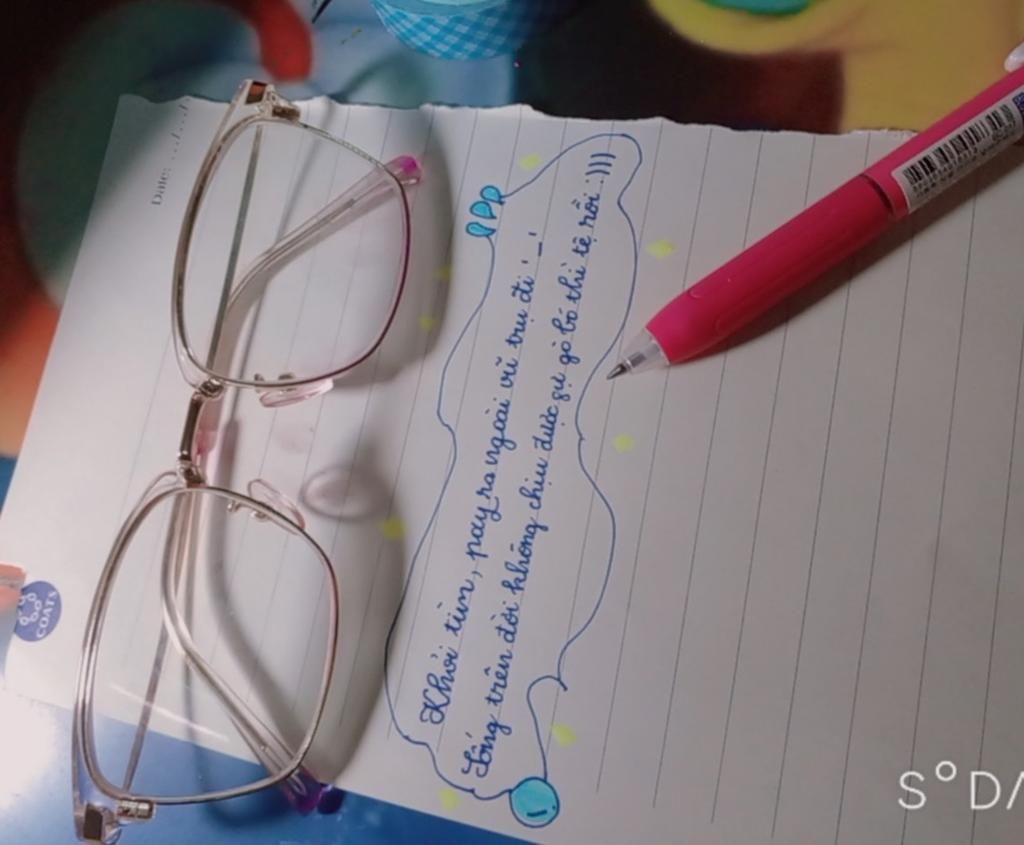 Date: .../.../
Khỏi tìm, pay ra ngoài vũ trụ đi '_'
Sống trên đời không chịu được sự gò bó thì tệ rồi :)))
COATS
S°DA